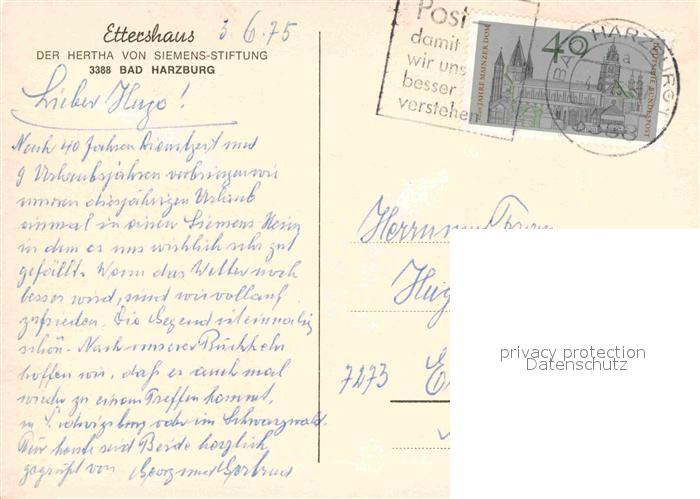 Ettershaus
DER HERTHA VON SIEMENS-STIFTUNG
3388 BAD HARZBURG
3.6.75
Lieber Hugo!
Nach 40 Jahren Dienstzeit und
9 Urlaubsjahren verbringen wir
unseren diesjährigen Urlaub
einmal in einem Siemens Heim
in dem es uns wirklich sehr gut
gefällt. Wenn das Wetter noch
besser wird, sind wir vollauf
zufrieden. Die Gegend ist einmalig
schön. Nach unserer Rückkehr
hoffen wir, daß es auch mal
wieder zu einem Treffen kommt,
in Ludwigsburg oder im Schwarzwald.
Für heute seid Beide herzlich
gegrüßt von Georg und Gertrud
Post
damit
wir uns
besser
verstehen
40
1000 JAHRE MAINZER DOM
DEUTSCHE BUNDESPOST
BAD HARZBURG 1
a
3388
Herrn und Frau
Hug
7273
privacy protection
Datenschutz